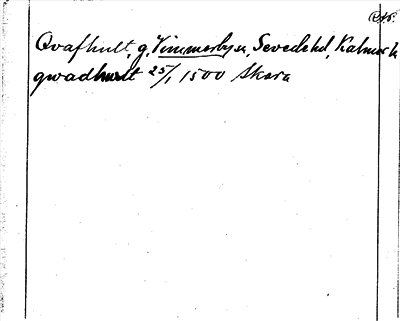 Qvafhult, g. Vimmerby sn, Sevede hd, Kalmar l.
qwadhwlt 25/1 1500 Skara